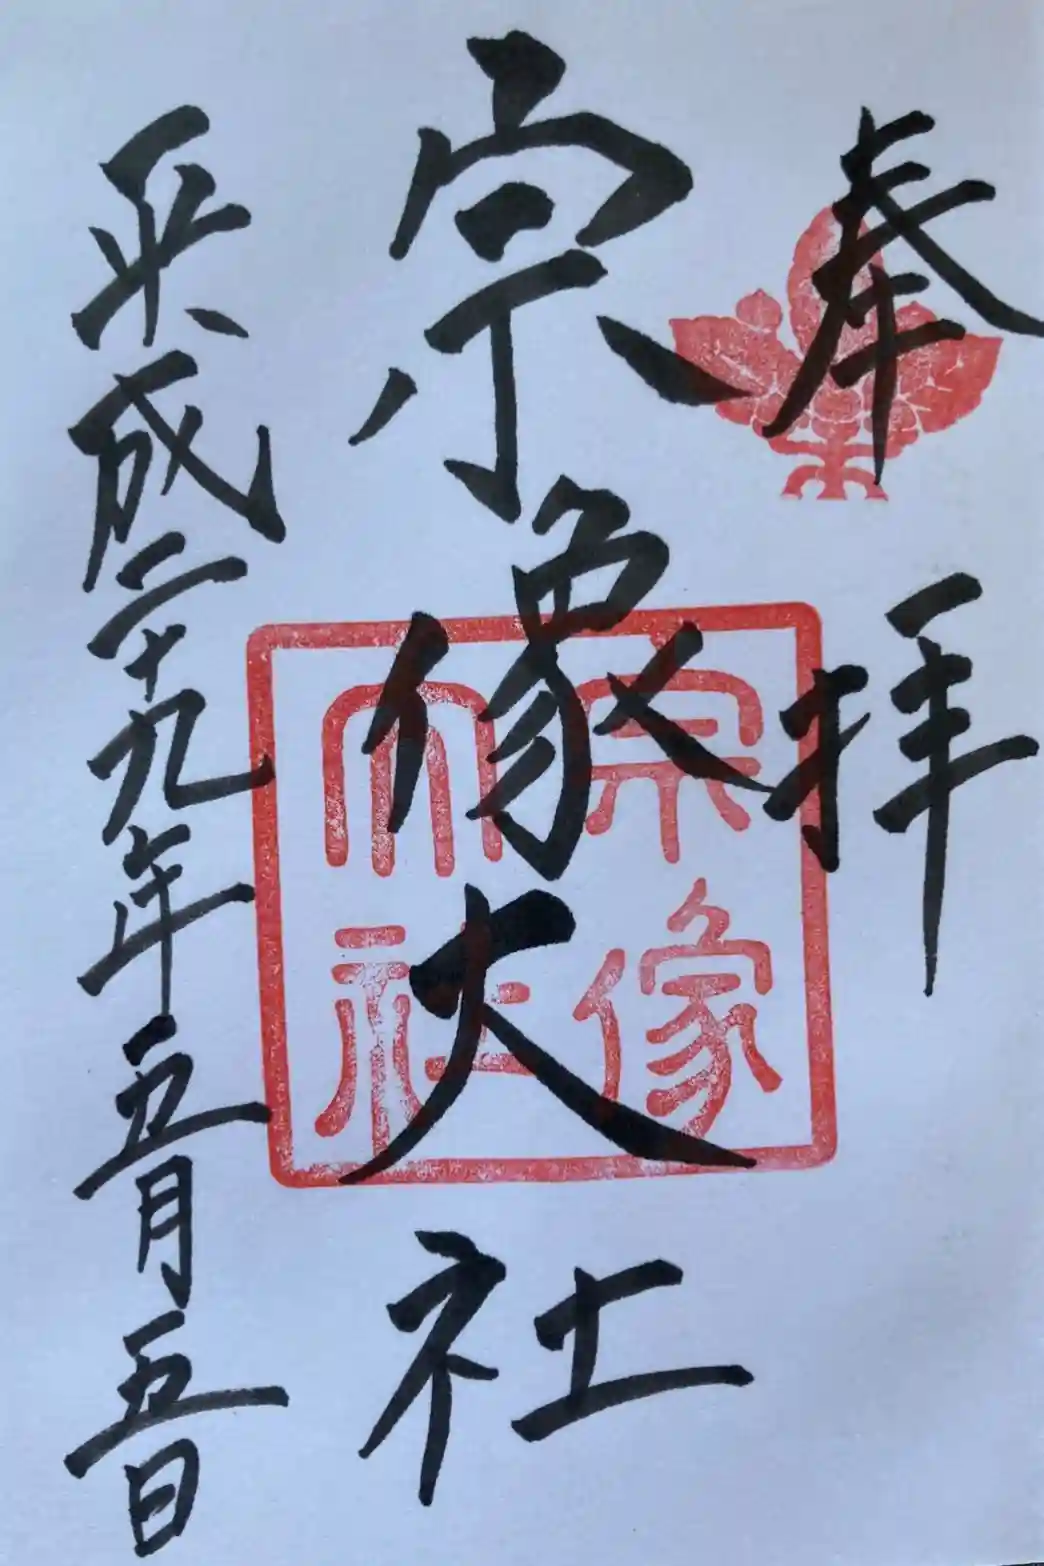 奉拝
宗像大社
平成二十九年五月五日
宗像
大社